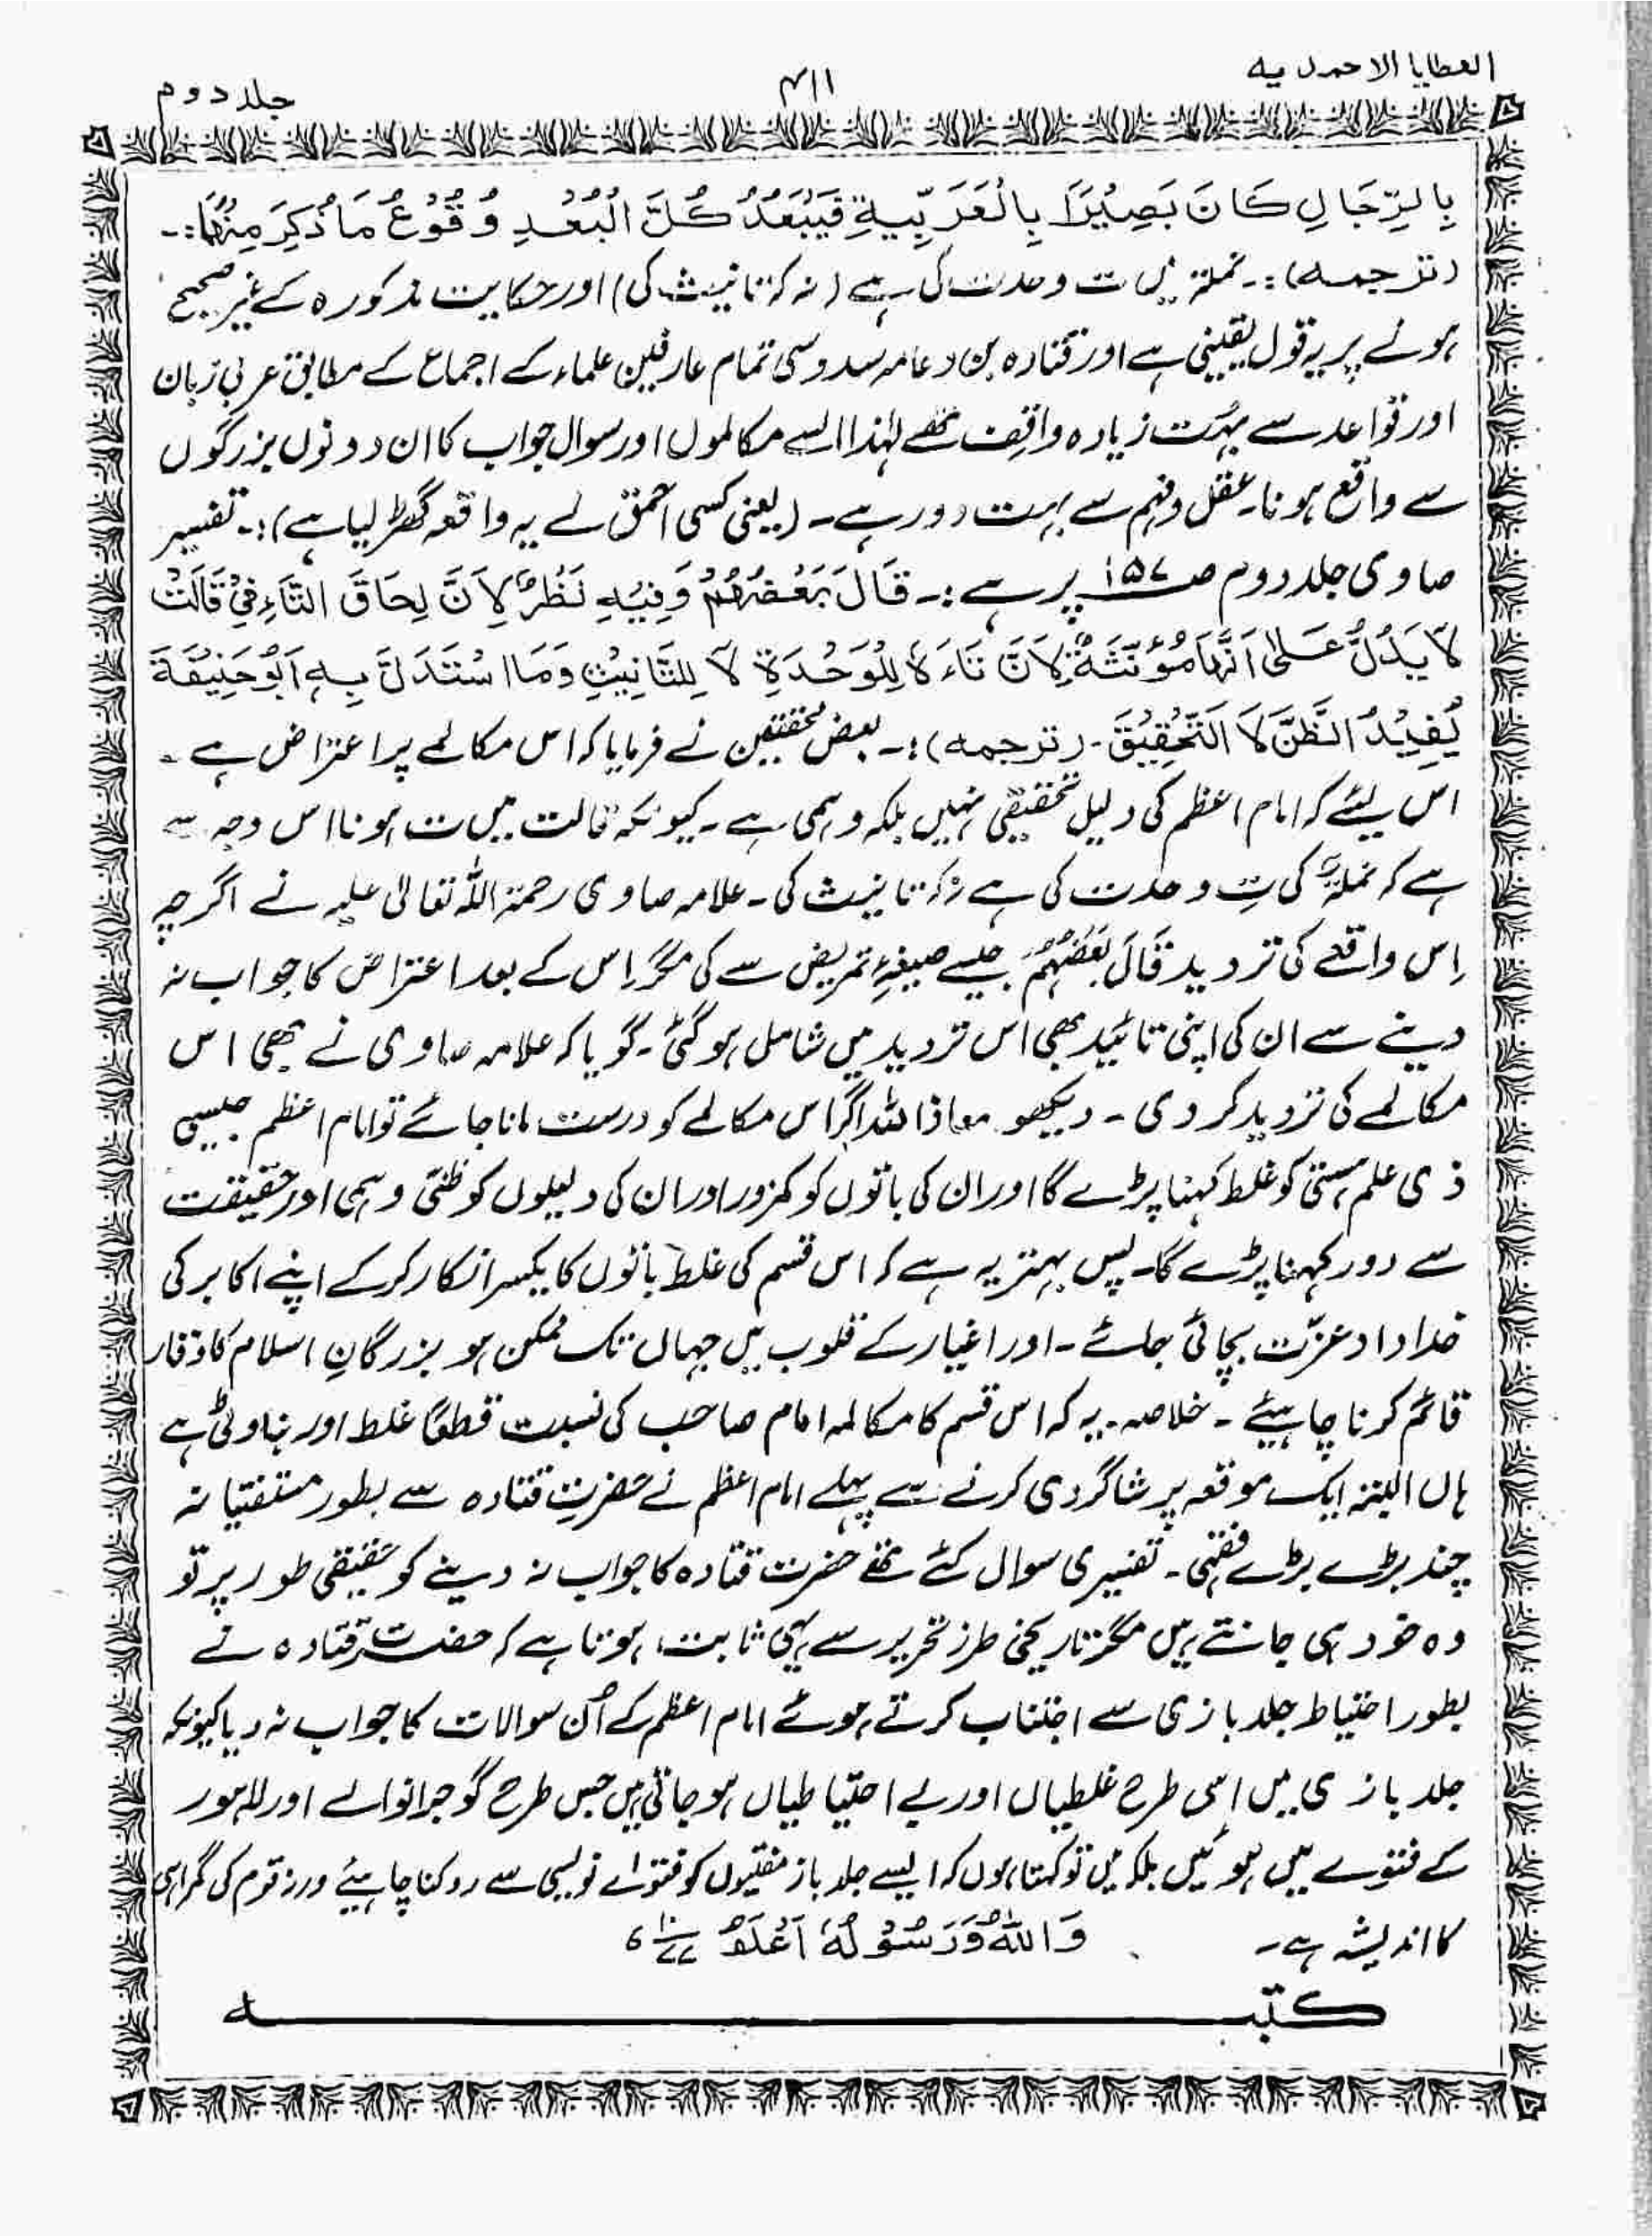 العطایا الاحمدیہ
۴۱۱
جلد دوم
بِالرِّجَالِ كَانَ بَصِيْرًا بِالْعَرَبِّيةِ فَيَبْعَدُ كُلَّ الْبُعْدِ وُقُوْعُ مَا ذُكِرَ مِنْهُمَا:۔
(ترجمہ):۔ نملۃ میں ت وحدت کی ہے (نہ کہ تانیث کی) اور حکایت مذکورہ کے غیر صحیح
ہونے پر یہ قول یقینی ہے اور قتادہ بن دعامہ سدوسی تمام عارفین علماء کے اجماع کے مطابق عربی زبان
اور قواعد سے بہت زیادہ واقف تھے لہٰذا ایسے مکالموں اور سوال جواب کا ان دونوں بزرگوں
سے واقع ہونا۔ عقل و فہم سے بہت دور ہے۔ (یعنی کسی احمق نے یہ واقعہ گھڑ لیا ہے):۔ تفسیر
صاوی جلد دوم صـ۱۵۷ پر ہے:۔ قَالَ بَعْضُهُمْ وَفِيْهِ نَظْرٌ لِاَنَّ لِحَاقَ التَّاءِ فِيْ قَالَتْ
لَا يَدُلُّ عَلٰى اَنَّهَا مُؤَنَّثَةٌ لِاَنَّ تَاءَهٗ لِلْوَحْدَةِ لَا لِلتَّانِيْثِ وَمَا اسْتَدَلَّ بِهٖ اَبُوْحَنِيْفَةَ
يُفِيْدُ الظَّنَّ لَا التَّحْقِيْقَ۔ (ترجمہ):۔ بعض محققین نے فرمایا کہ اس مکالمے پر اعتراض ہے۔
اس لیئے کہ امام اعظم کی دلیل تحقیقی نہیں بلکہ وہمی ہے۔ کیونکہ قالت میں ت ہونا اس وجہ سے
ہے کہ نملۃٌ کی تِ وحدت کی ہے نہ کہ تانیث کی۔ علامہ صاوی رحمۃ اللہ تعالیٰ علیہ نے اگرچہ
اِس واقعے کی تردید قَالَ بَعْضُهُمْ جیسے صیغۂ تمریض سے کی مگر اِس کے بعد اعتراض کا جواب نہ
دینے سے ان کی اپنی تائید بھی اس تردید میں شامل ہو گئی۔ گویا کہ علامہ صاوی نے بھی اس
مکالمے کی تردید کر دی۔ دیکھو معاذ اللہ اگر اس مکالمے کو درست مانا جائے تو امام اعظم جیسی
ذی علم ہستی کو غلط کہنا پڑے گا اور ان کی باتوں کو کمزور اور ان کی دلیلوں کو ظنّی وہمی اور حقیقت
سے دور کہنا پڑے گا۔ پس بہتر یہ ہے کہ اس قسم کی غلط باتوں کا یکسر انکار کر کے اپنے اکابر کی
خداداد عزّت بچائی جائے۔ اور اغیار کے قلوب میں جہاں تک ممکن ہو بزرگانِ اسلام کا وقار
قائم کرنا چاہیئے۔ خلاصہ۔ یہ کہ اس قسم کا مکالمہ امام صاحب کی نسبت قطعًا غلط اور بناوٹی ہے
ہاں البتہ ایک موقعہ پر شاگردی کرنے سے پہلے امام اعظم نے حضرتِ قتادہ سے بطور مستفتیانہ
چند بڑے بڑے فقہی۔ تفسیری سوال کئے تھے حضرت قتادہ کا جواب نہ دینے کو حقیقی طور پر تو
وہ خود ہی جانتے ہیں مگر تاریخی طرز تحریر سے یہی ثابت ہوتا ہے کہ حضرت قتادہ نے
بطور احتیاط جلد بازی سے اجتناب کرتے ہوئے امام اعظم کے اُن سوالات کا جواب نہ دیا کیونکہ
جلد بازی میں اِسی طرح غلطیاں اور بے احتیاطیاں ہو جاتی ہیں جس طرح گوجرانوالے اور لاہور
کے فتوے میں ہو گئیں بلکہ میں تو کہتا ہوں کہ ایسے جلد باز مفتیوں کو فتوٰے نویسی سے روکنا چاہیئے ورنہ قوم کی گمراہی
کا اندیشہ ہے۔ وَاللّٰهُ وَرَسُوْلُهٗ اَعْلَمُ
کتبـــــــہ